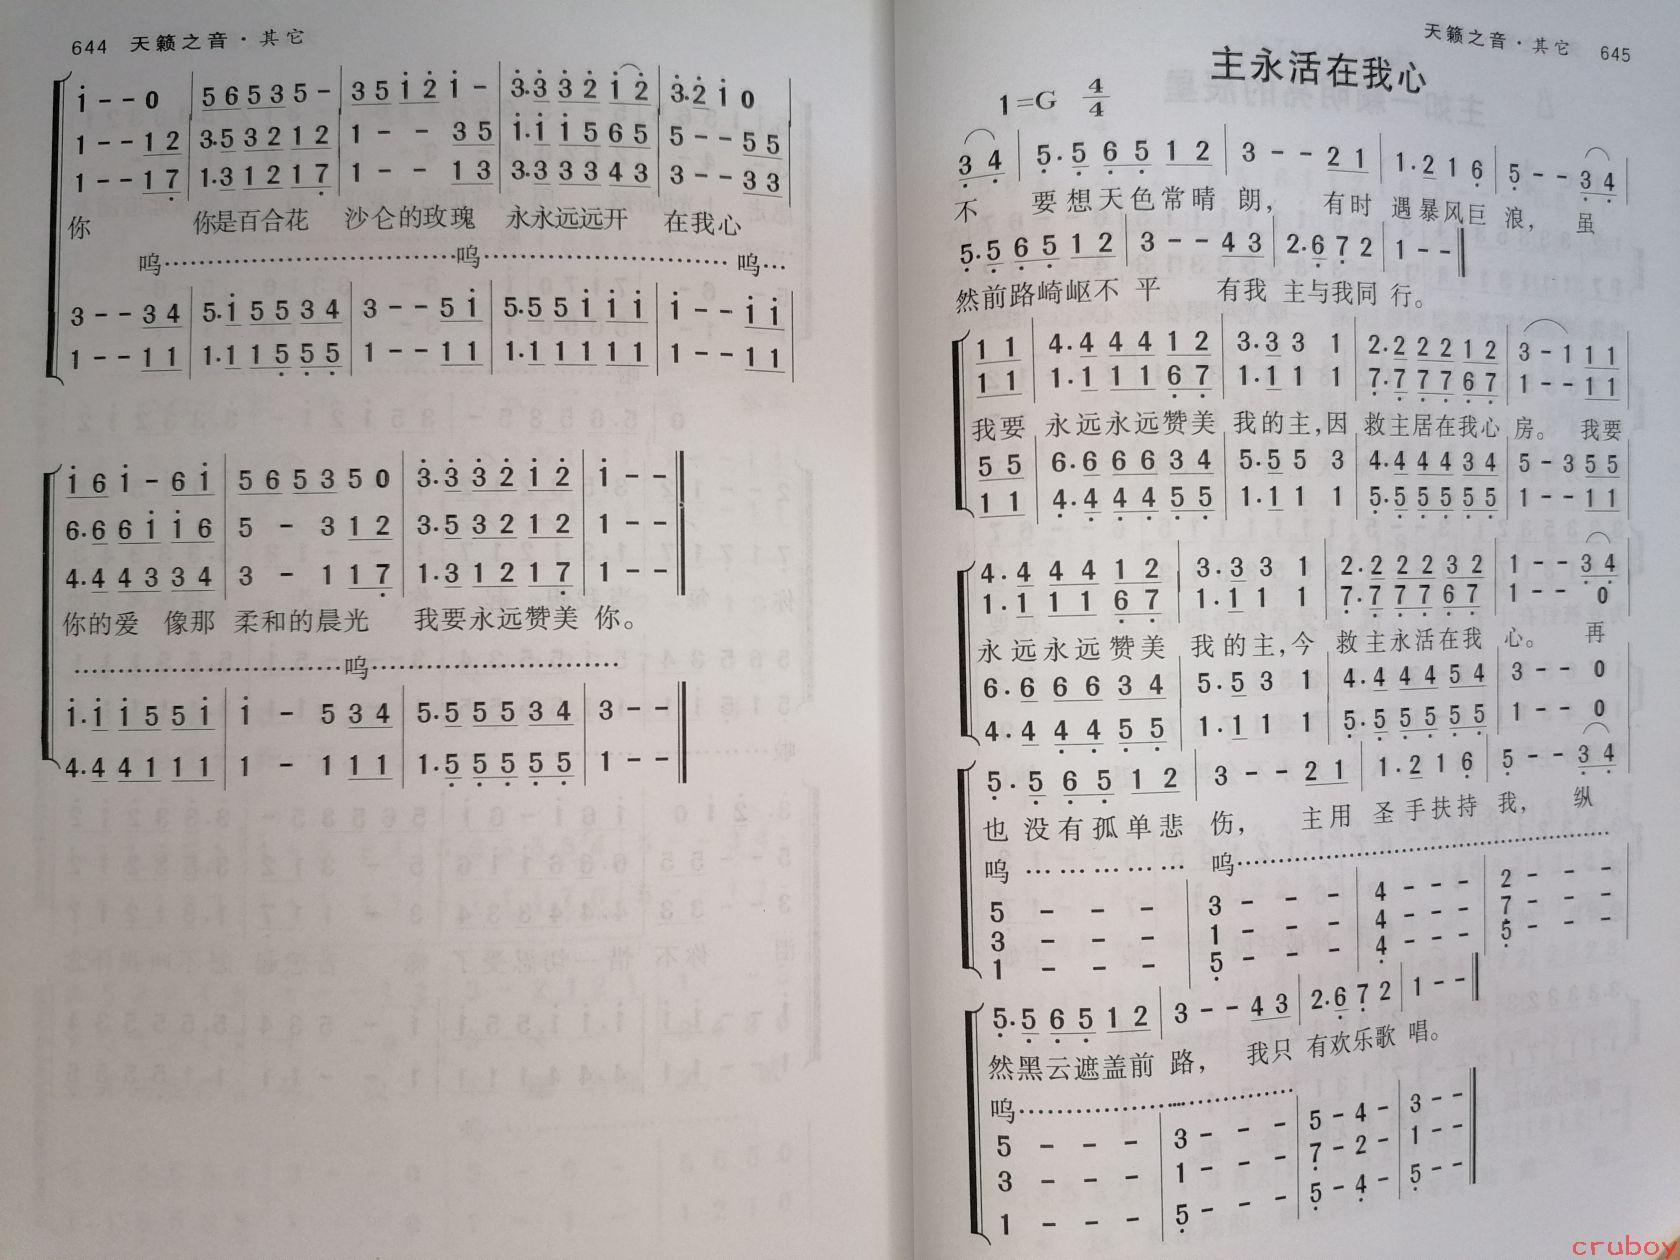 644 天籁之音·其它
i - - 0 | 5 6 5 3 5 - | 3 5 i 2 i - | 3. 3 3 2 i 2 | 3. 2 i 0 |
1 - - 1 2 | 3. 5 3 2 1 2 | 1 - - 3 5 | i. i i 5 6 5 | 5 - - 5 5 |
1 - - 1 7 | 1. 3 1 2 1 7 | 1 - - 1 3 | 3. 3 3 3 4 3 | 3 - - 3 3 |
你 你是百合花 沙仑的玫瑰 永永远远开 在我心
呜……………………………呜………………………… 呜…
3 - - 3 4 | 5. i 5 5 3 4 | 3 - - 5 i | 5. 5 5 i i i | i - - i i |
1 - - 1 1 | 1. 1 1 5 5 5 | 1 - - 1 1 | 1. 1 1 1 1 1 | 1 - - 1 1 |
i 6 i - 6 i | 5 6 5 3 5 0 | 3. 3 3 2 i 2 | i - - ‖
6. 6 6 i i 6 | 5 - 3 1 2 | 3. 5 3 2 1 2 | 1 - - ‖
4. 4 4 3 3 4 | 3 - 1 1 7 | 1. 3 1 2 1 7 | 1 - - ‖
你的爱 像那 柔和的晨光 我要永远赞美 你。
……………………………呜…………………………
i. i i 5 5 i | i - 5 3 4 | 5. 5 5 5 3 4 | 3 - - ‖
4. 4 4 1 1 1 | 1 - 1 1 1 | 1. 5 5 5 5 5 | 1 - - ‖
天籁之音·其它 645
主永活在我心
1=G 4/4
3 4 | 5. 5 6 5 1 2 | 3 - - 2 1 | 1. 2 1 6 | 5 - - 3 4 |
不 要想天色常晴 朗, 有时 遇暴风巨 浪, 虽
5. 5 6 5 1 2 | 3 - - 4 3 | 2. 6 7 2 | 1 - - ‖
然前路崎岖不 平 有我 主与我同 行。
1 1 | 4. 4 4 4 1 2 | 3. 3 3 1 | 2. 2 2 2 1 2 | 3 - 1 1 1 |
1 1 | 1. 1 1 1 6 7 | 1. 1 1 1 | 7. 7 7 7 6 7 | 1 - - 1 1 |
我要 永远永远赞美 我的主,因 救主居在我心 房。 我要
5 5 | 6. 6 6 6 3 4 | 5. 5 5 3 | 4. 4 4 4 3 4 | 5 - 3 5 5 |
1 1 | 4. 4 4 4 5 5 | 1. 1 1 1 | 5. 5 5 5 5 5 | 1 - - 1 1 |
4. 4 4 4 1 2 | 3. 3 3 1 | 2. 2 2 2 3 2 | 1 - - 3 4 |
1. 1 1 1 6 7 | 1. 1 1 1 | 7. 7 7 7 6 7 | 1 - - 0 |
永远永远赞美 我的主,今 救主永活在我 心。 再
6. 6 6 6 3 4 | 5. 5 3 1 | 4. 4 4 4 5 4 | 3 - - 0 |
4. 4 4 4 5 5 | 1. 1 1 1 | 5. 5 5 5 5 5 | 1 - - 0 |
5. 5 6 5 1 2 | 3 - - 2 1 | 1. 2 1 6 | 5 - - 3 4 |
也没有孤单悲 伤, 主用 圣手扶持 我, 纵
呜 …………… 呜………………………………………
5 - - - | 3 - - - | 4 - - - | 2 - - - |
3 - - - | 1 - - - | 4 - - - | 7 - - - |
1 - - - | 5 - - - | 4 - - - | 5 - - - |
5. 5 6 5 1 2 | 3 - - 4 3 | 2. 6 7 2 | 1 - - ‖
然黑云遮盖前 路, 我只 有欢乐歌 唱。
呜………………………………
5 - - - | 3 - - - | 5 - 4 - | 3 - - ‖
3 - - - | 1 - - - | 7 - 2 - | 1 - - ‖
1 - - - | 5 - - - | 5 - 4 - | 5 - - ‖
cruboy